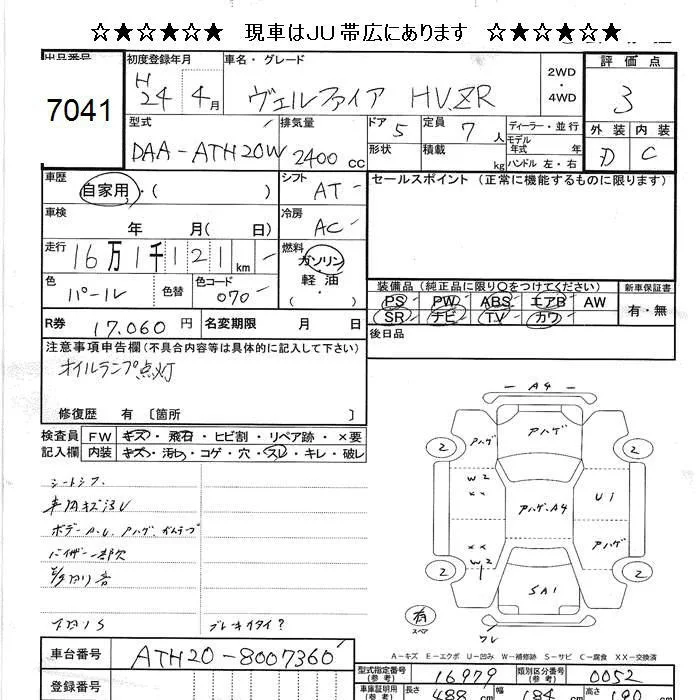 ☆★☆★☆★ 現車はJU帯広にあります ☆★☆★☆★
出品番号
7041
初度登録年月
H24 4月
車名・グレード
ヴェルファイア HV.ZR
2WD
・
4WD
評価点
3
外装 内装
D C
型式
DAA-ATH20W
排気量
2400 cc
ドア 5
形状
定員 7人
積載 kg
ディーラー・並行
モデル
年式 年
ハンドル 左・右
車歴
自家用・( )
シフト
AT
セールスポイント(正常に機能するものに限ります)
車検
年 月( 日)
冷房
AC
走行
16万1千121km
燃料
ガソリン
軽・油
・( )
色
パール
色替
色コード
070
装備品(純正品に限り○をつけてください)
PS PW ABS エアB AW
SR ナビ TV カワ
新車保証書
有・無
R券 17,060円
名変期限 月 日
後日品
注意事項申告欄(不具合内容等は具体的に記入して下さい)
オイルランプ点灯
修復歴 有 〔箇所 〕
検査員
記入欄
FW キズ・飛石・ヒビ割・リペア跡・×要
内装 キズ・汚れ・コゲ・穴・スレ・キレ・破レ
シートシワ
バイザー一部欠
下回りS
ブレーキイタイ?
A4
アハゲ
アハゲ
W2
XX
アハゲ.A4
U1
XX
W2
アハゲ
SA1
2
2
2
2
有
スペア
ワレ
A-キズ E-エクボ U-凹み W-補修跡 S-サビ C-腐食 XX-交換済
車台番号
ATH20-8007360
型式指定番号
(参考)
16979
類別区分番号
(参考)
0052
登録番号
車庫証明用
(参考)
488 cm
幅
184 cm
高さ
190 cm